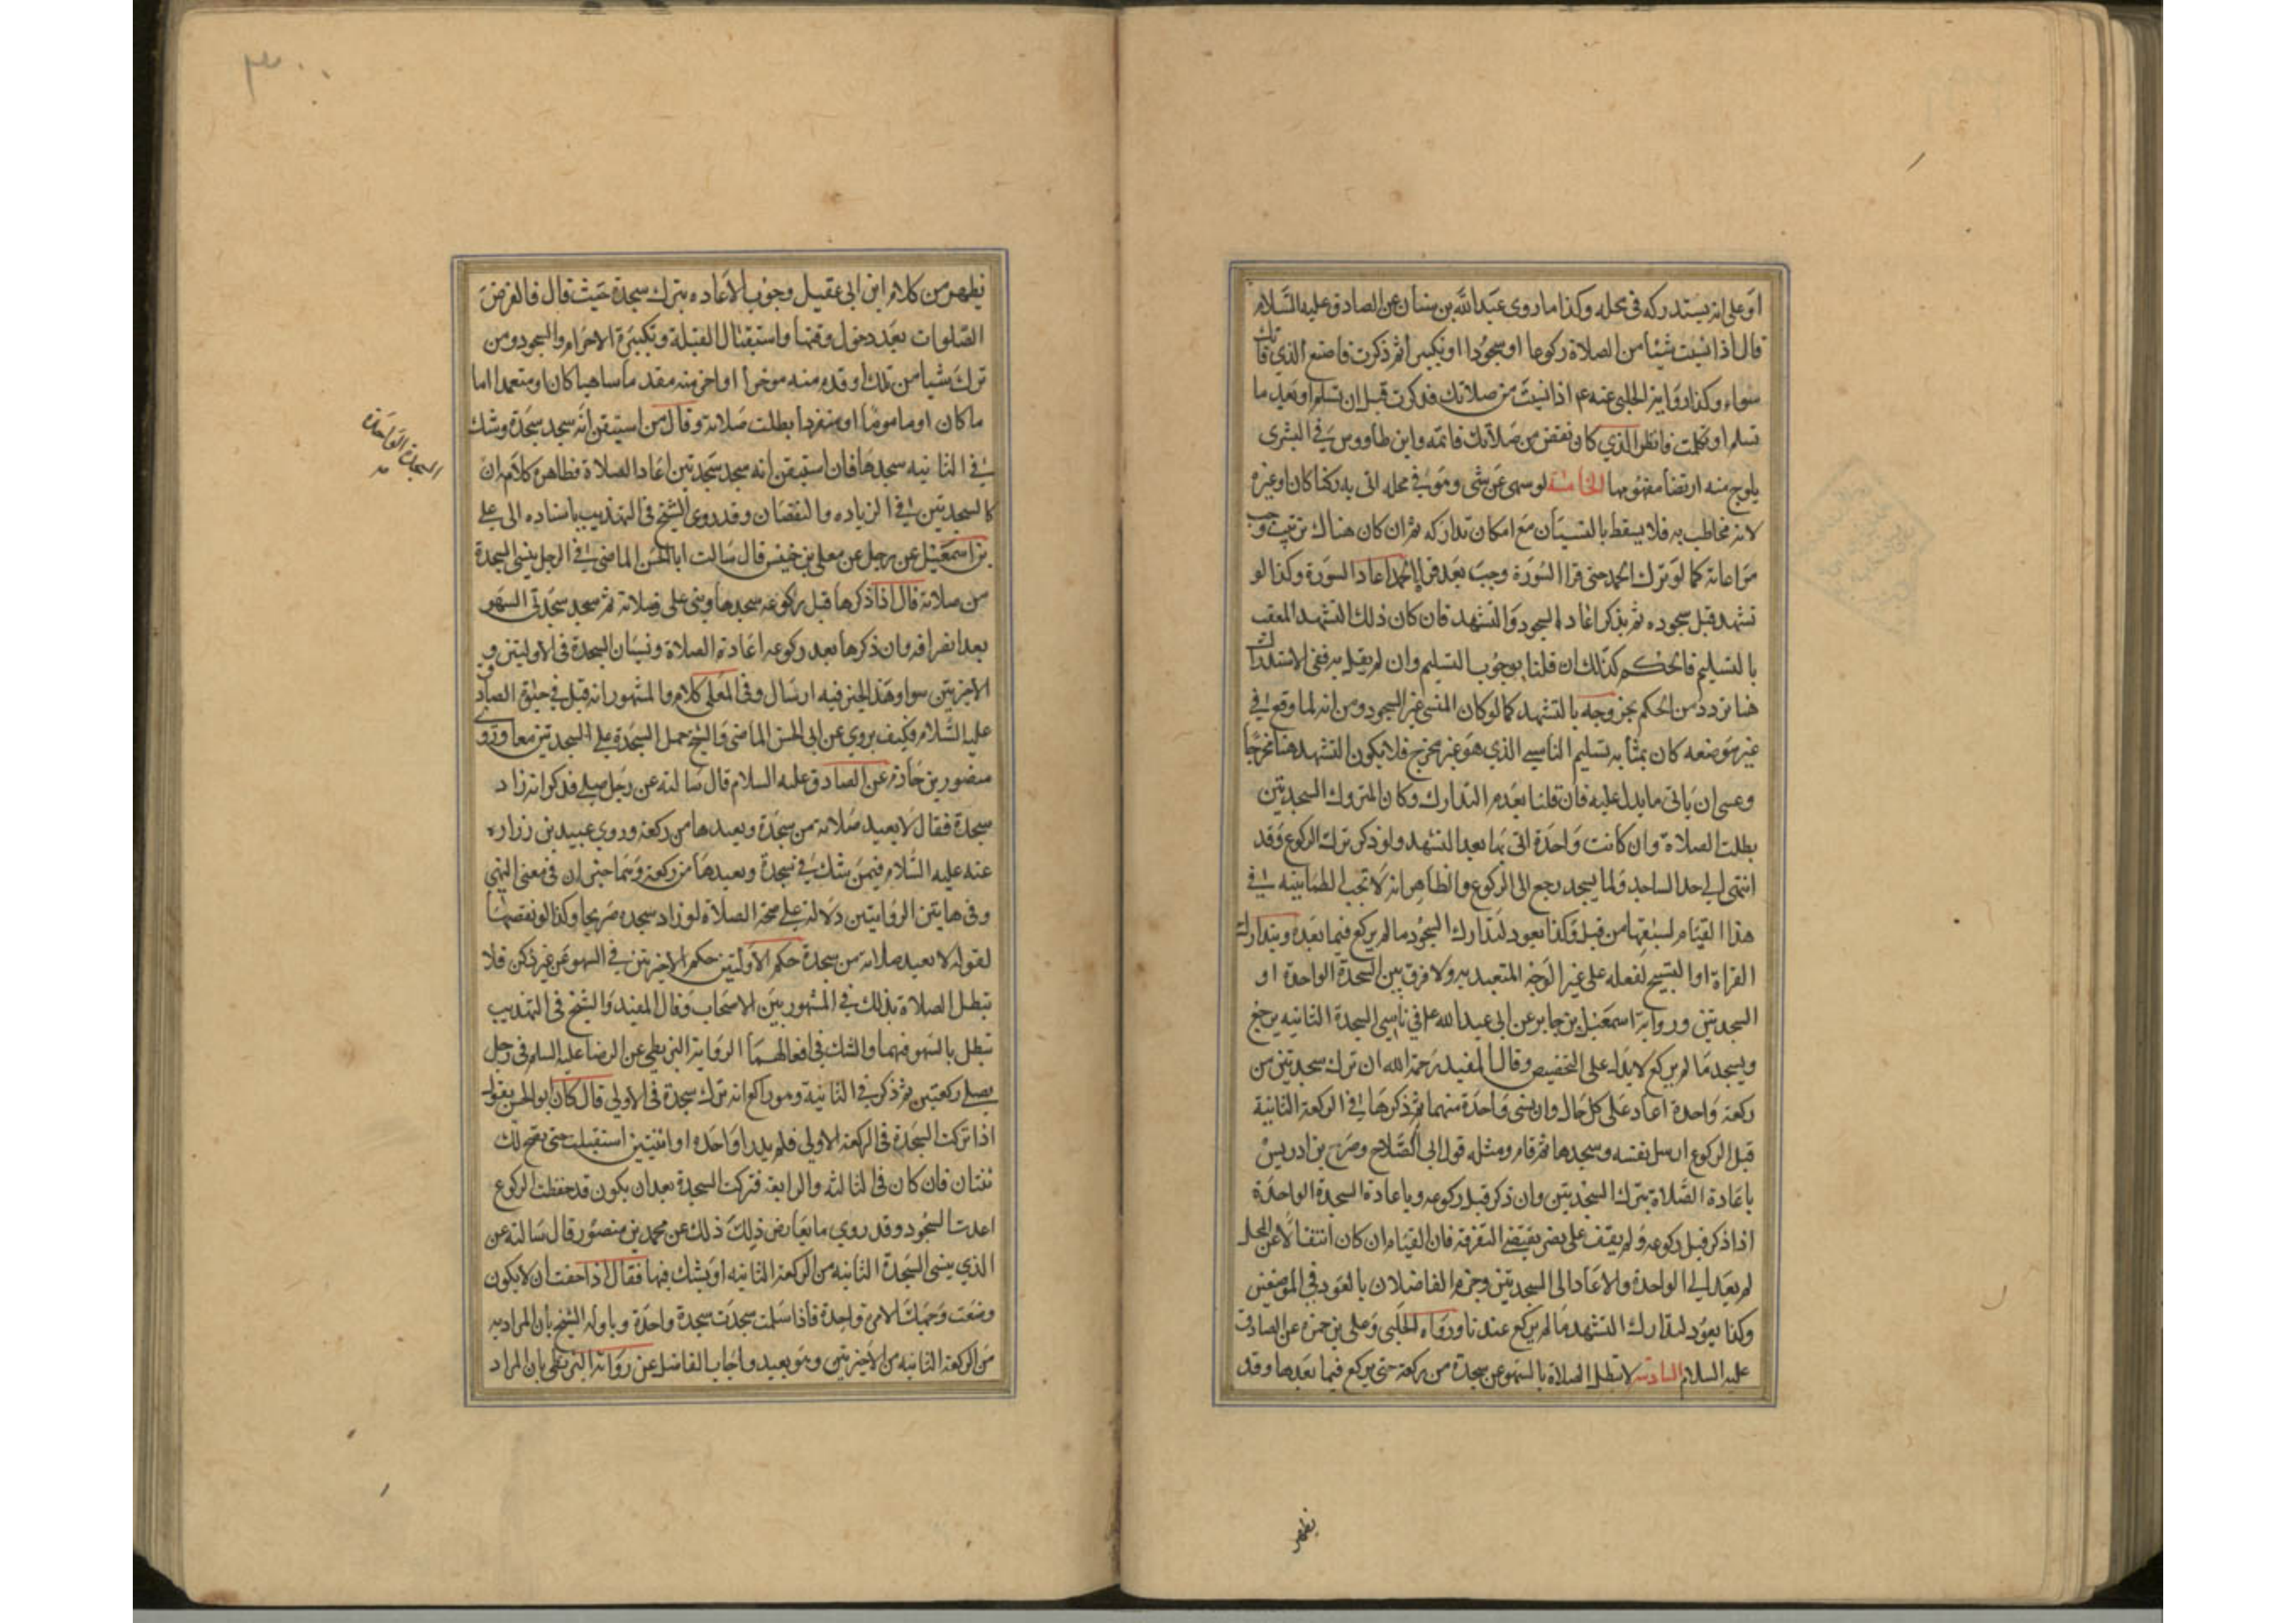 او على انه يستدركه في محله وكذا ما روى عبد الله بن سنان عن الصادق عليه السلام
قال اذا نسيت شيئا من الصلاة ركوعا او سجودا او تكبيرا ثم ذكرت فاصنع الذي فاتك
سواء وكذا رواية الحلبي عنه ع اذا نسيت من صلاتك فذكرت قبل ان تسلم او بعد ما
تسلم او تكلمت فانظر الذي كان نقص من صلاتك فاتمه وابن طاووس في البشرى
يلوح منه ارتضا مفهومها الخامسة لو سهى عن شي وهو في محله اتى به ركنا كان او غيره
لانه مخاطب به فلا يسقط بالنسيان مع امكان تداركه ثم ان كان هناك ترتيب وجب
مراعاته كما لو ترك الحمد حتى قرا السورة وجب بعد قراة الحمد اعادا السورة وكذا لو
تشهد قبل سجوده ثم يذكر اعاده السجود والتشهد فان كان ذلك التشهد المعقب
بالتسليم فالحكم كذلك ان قلنا بوجوب التسليم وان لم نقل به ففي الاستدراك
هنا تردد من الحكم بخروجه بالتشهد كما لو كان المنسي غير السجود ومن انه لما وقع في
غير موضعه كان بمثابه تسليم الناسي الذي هو غير مخرج فلا يكون التشهد هنا مخرجا
وعسى ان ياتى ما يدل عليه فان قلنا بعدم التدارك وكان المتروك السجدتين
بطلت الصلاة وان كانت واحدة اتى بها بعد التشهد ولو ذكر ترك الركوع وقد
انتهى الى حد الساجد ولما يسجد رجع الى الركوع والظاهر انه لا تجب الطمانينه في
هذا القيام لسبقها من قبل وكذا يعود لتدارك السجود ما لم يركع فيما بعده ويتدارك
القراة او التسبيح لفعله على غير الوجه المتعبد به ولا فرق بين السجدة الواحدة او
السجدتين ورواية اسمعيل بن جابر عن ابي عبد الله ع في ناسي السجدة الثانيه يرجع
ويسجد ما لم يركع لا يدل على التخصيص وقال المفيد رحمة الله ان ترك سجدتين من
ركعة واحدة اعاد على كل حال وان نسى واحدة منهما ثم ذكرها في الركعة الثانية
قبل الركوع ارسل نفسه وسجدها ثم قام ومثله قول ابي الصلاح وصرح بن ادريس
باعادة الصلاة بترك السجدتين وان ذكر قبل ركوعه وباعادة السجدة الواحدة
اذا ذكر قبل ركوعه ولم يقف على نص يقتضى التفرقة فان القيام ان كان انتقالا عن المحل
لم يعد الى الواحدة والا عاد الى السجدتين وجزم الفاضلان بالعود في الموضعين
وكذا يعود لتدارك التشهد ما لم يركع عندنا ورواه الحلبي وعلى بن حمزة عن الصادق
عليه السلام السادسة لا تبطل الصلاة بالسهو عن سجدة من ركعة حتى يركع فيما بعدها وقد
يظهر
يظهر من كلام ابن ابى عقيل وجوب الاعاده بترك سجدة حيث قال فالفرض
الصلوات بعد دخول وقتها واستقبال القبلة وتكبيرة الاحرام والسجود ومن
ترك شيا من تلك او قدم منه موخرا او اخر منه مقدما ساهيا كان او متعمدا اما
ما كان او ماموما او منفردا بطلت صلاته وقال من استيقن انه سجد سجدة وشك
في الثانيه سجدها فان استيقن انه سجد سجدتين اعاد الصلاة فظاهره كلامه ان
السجدة الواحدة
كالسجدتين في الزياده والنقصان وقد روى الشيخ في التهذيب باسناده الى على
بن اسمعيل عن رجل عن معلى بن خنيس قال سالت ابا الحسن الماضى في الرجل ينسى السجدة
من صلاته قال اذا ذكرها قبل ركوعه سجدها وبنى على صلاته ثم سجد سجدتى السهو
بعد انصرافه وان ذكرها بعد ركوعه اعادة الصلاة ونسيان السجدة في الاوليتين و
الاخيرتين سوا وهذا الخبر فيه ارسال وفى المعلى كلام والمشهور انه قتل في حيوة الصادق
عليه السلام فكيف يروي عن ابى الحسن الماضى والشيخ حمل السجدة على السجدتين معا وروى
منصور بن حازم عن الصادق عليه السلام قال سالته عن رجل صلى فذكر انه زاد
سجدة فقال لا يعيد صلاته من سجدة ويعيدها من ركعة وروي عبيد بن زراره
عنه عليه السلام فيمن شك في سجدة ويعيدها من ركعة
وفى هاتين الروايتين دلالة على صحة الصلاة لو زاد سجده صريحا وكذا لو نقصها
لقوله لا يعيد صلاته من سجدة حكم الاولتين حكم الاخيرتين في السهو عن غير ركن فلا
تبطل الصلاة بذلك في المشهور بين الاصحاب وقال المفيد والشيخ في التهذيب
تبطل بالسهو فيهما والشك في افعالهما الرواية البزنطى عن الرضا عليه السلم في رجل
يصلى ركعتين ثم ذكر في الثانية وهو راكع انه ترك سجدة في الاولى قال كان ابو الحسن يقول
اذا تركت السجدة في الركعة الاولى فلم يدر اواحده او اثنتين استقبلت حتى يصح لك
ثنتان فان كان في الثالثه والرابعة فتركت السجدة بعد ان يكون قد حفظت الركوع
اعدت السجود وقد روي ما يعارض ذلك ذلك عن محمد بن منصور قال سالته عن
الذي ينسى السجدة الثانيه من الركعة الثانيه او يشك فيها فقال اذا خفت ان لا يكون
وضعت وجهك الا مرة واحدة فاذا سلمت سجدت سجدة واحدة وياوله الشيخ بان المراد به
من الركعة الثانيه من الاخيرتين وهو بعيد واجاب الفاضل عن رواية البزنطى بان المراد